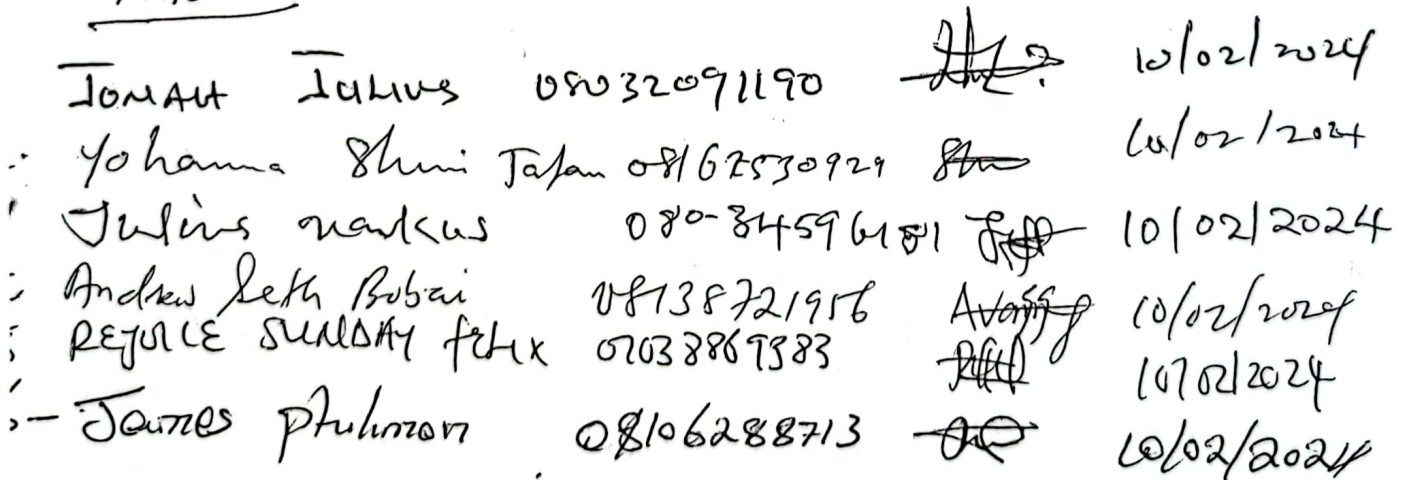 JONAH JULIUS 08032091190 10/02/2024
Yohanna Shuni Jatau 08167530929 10/02/2024
Julius markus 080-34596181 10/02/2024
Andrew Seth Bobai 08138721956 10/02/2024
REJOICE SUNDAY felix 07038869383 10/02/2024
- James philimon 08106288713 10/02/2024